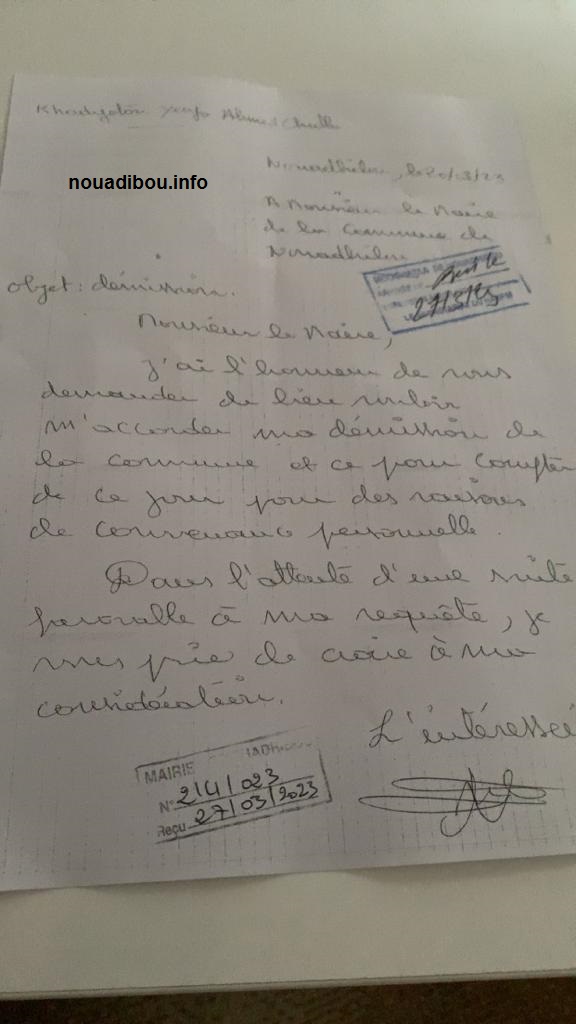 Nouadhibou, le 20/03/23
nouadibou.info
A Monsieur le Maire
de la Commune de
Nouadhibou
27/3/23
Objet: démission.
Monsieur le Maire,
J'ai l'honneur de vous
demander de bien vouloir
m'accorder ma démission de
la commune et ce pour compter
de ce jour pour des raisons
de convenance personnelle.
Dans l'attente d'une suite
favorable à ma requête, je
vous prie de croire à ma
considération.
L'intéressé
MAIRIE
N° 214/023
Reçu 27/03/2023